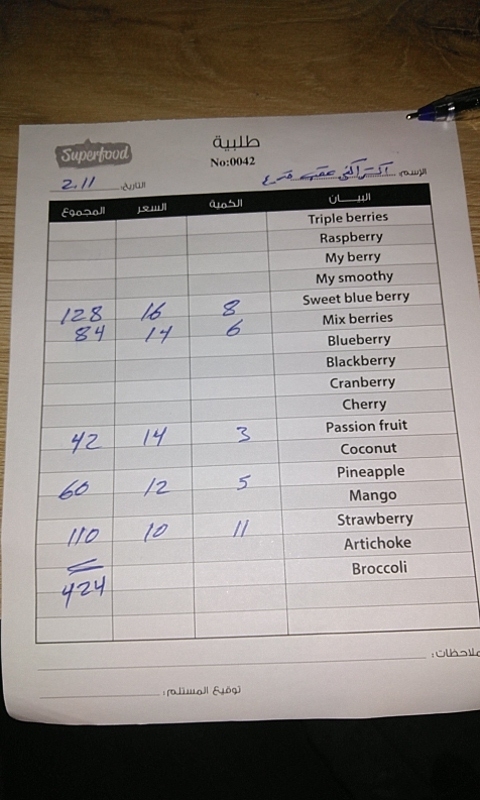 Superfood
طلبية
No:0042
الإسم:
التاريخ: 2.11
البيـــان الكمية السعر المجموع
Triple berries
Raspberry
My berry
My smoothy
Sweet blue berry 8 16 128
Mix berries 6 14 84
Blueberry
Blackberry
Cranberry
Cherry
Passion fruit 3 14 42
Coconut
Pineapple 5 12 60
Mango
Strawberry 11 10 110
Artichoke
Broccoli
424
ملاحظات:
توقيع المستلم: